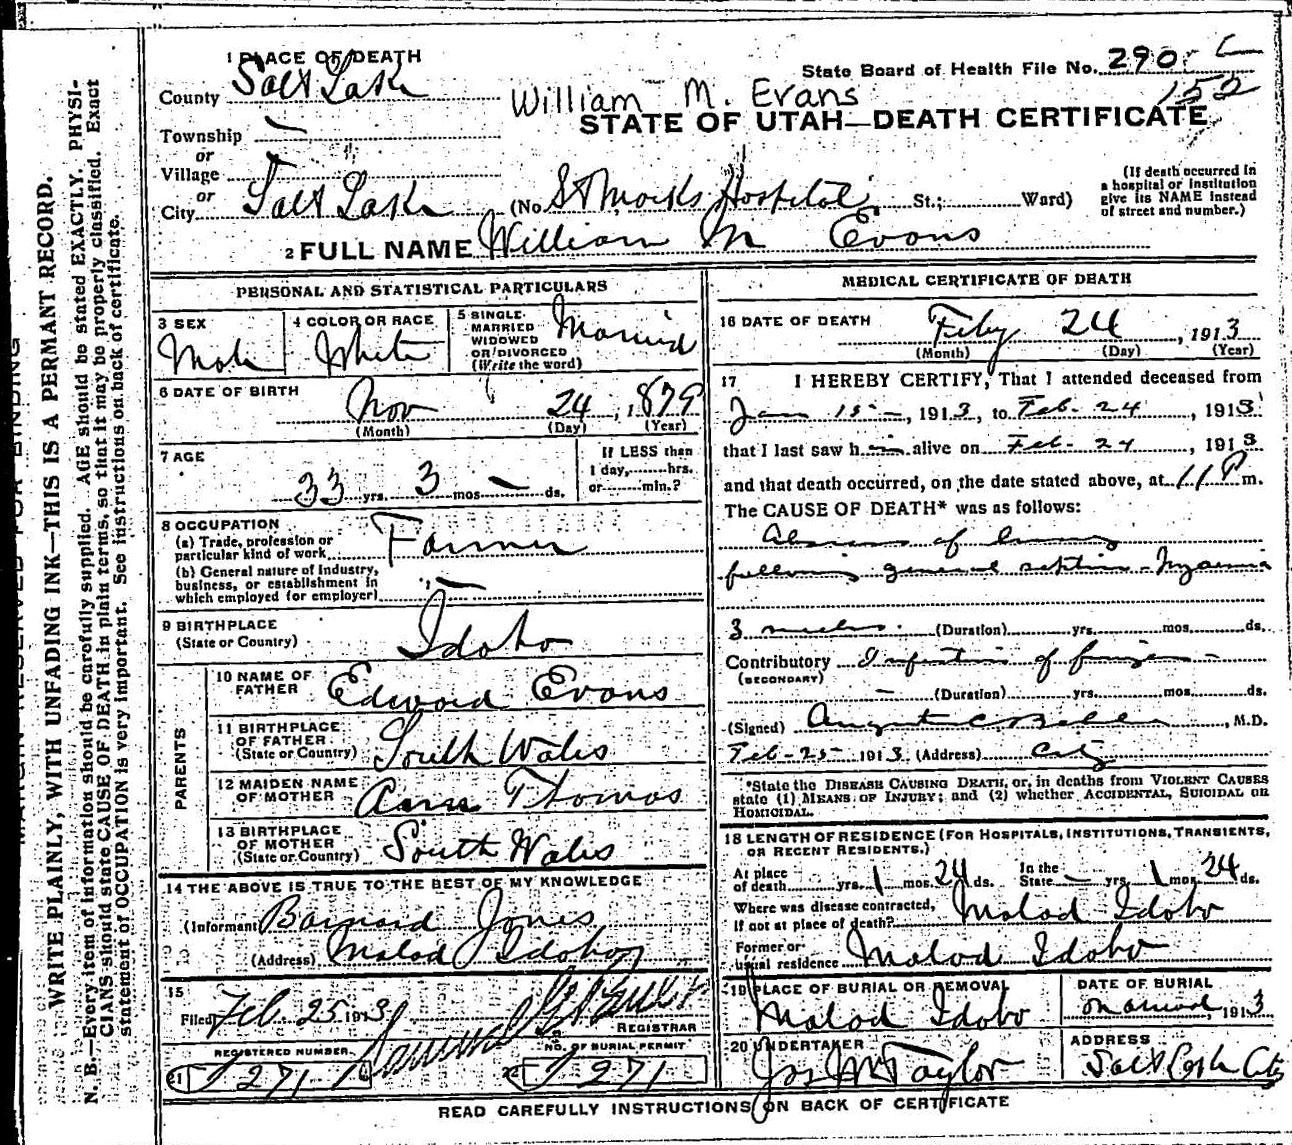 1 PLACE OF DEATH
State Board of Health File No. 290 C
152
County Salt Lake
William M. Evans
STATE OF UTAH—DEATH CERTIFICATE
Township —
or
Village
or
City Salt Lake (No. St Marks Hospital, St.; Ward)
(If death occurred in a hospital or institution give its NAME instead of street and number.)
2 FULL NAME William M Evans
PERSONAL AND STATISTICAL PARTICULARS
3 SEX
Male
4 COLOR OR RACE
White
5 SINGLE MARRIED WIDOWED OR DIVORCED (Write the word)
Married
6 DATE OF BIRTH
Nov 24, 1879
(Month) (Day) (Year)
7 AGE
33 yrs. 3 mos. — ds.
If LESS than
1 day, hrs.
or min.?
8 OCCUPATION
(a) Trade, profession or
particular kind of work Farmer
(b) General nature of Industry,
business, or establishment in
which employed (or employer) —
9 BIRTHPLACE
(State or Country) Idaho
PARENTS
10 NAME OF
FATHER Edward Evans
11 BIRTHPLACE
OF FATHER
(State or Country) South Wales
12 MAIDEN NAME
OF MOTHER Ann Thomas
13 BIRTHPLACE
OF MOTHER
(State or Country) South Wales
14 THE ABOVE IS TRUE TO THE BEST OF MY KNOWLEDGE
(Informant Barnard Jones
(Address) Malad Idaho
15
Filed Feb. 25 1913
REGISTRAR
REGISTERED NUMBER
21 271
NO. OF BURIAL PERMIT
22 271
MEDICAL CERTIFICATE OF DEATH
16 DATE OF DEATH
Feby 24, 1913
(Month) (Day) (Year)
17 I HEREBY CERTIFY, That I attended deceased from
Jan 15 —, 1913, to Feb. 24, 1913
that I last saw him alive on Feb. 24, 1913
and that death occurred, on the date stated above, at 11 P m.
The CAUSE OF DEATH* was as follows:
Abscess of lung
following general
3 weeks. (Duration) yrs. mos. ds.
Contributory Infection of finger —
(SECONDARY)
— (Duration) yrs. mos. ds.
(Signed) August C Behle, M.D.
Feb-25-1913 (Address) City
*State the DISEASE CAUSING DEATH, or, in deaths from VIOLENT CAUSES
state (1) MEANS OF INJURY; and (2) whether ACCIDENTAL, SUICIDAL OR
HOMICIDAL.
18 LENGTH OF RESIDENCE (FOR HOSPITALS, INSTITUTIONS, TRANSIENTS,
OR RECENT RESIDENTS.)
At place of death yrs. 1 mos. 24 ds. In the State — yrs. 1 mos. 24 ds.
Where was disease contracted,
If not at place of death? Malad Idaho
Former or
usual residence Malad Idaho
19 PLACE OF BURIAL OR REMOVAL
Malad Idaho
DATE OF BURIAL
1913
20 UNDERTAKER
Jos Wm Taylor
ADDRESS
Salt Lake City
READ CAREFULLY INSTRUCTIONS ON BACK OF CERTIFICATE
MARGIN RESERVED FOR BINDING
WRITE PLAINLY, WITH UNFADING INK—THIS IS A PERMANT RECORD.
N. B.—Every item of information should be carefully supplied. AGE should be stated EXACTLY. PHYSI-
CIANS should state CAUSE OF DEATH in plain terms, so that it may be properly classified. Exact
statement of OCCUPATION is very important. See instructions on back of certificate.